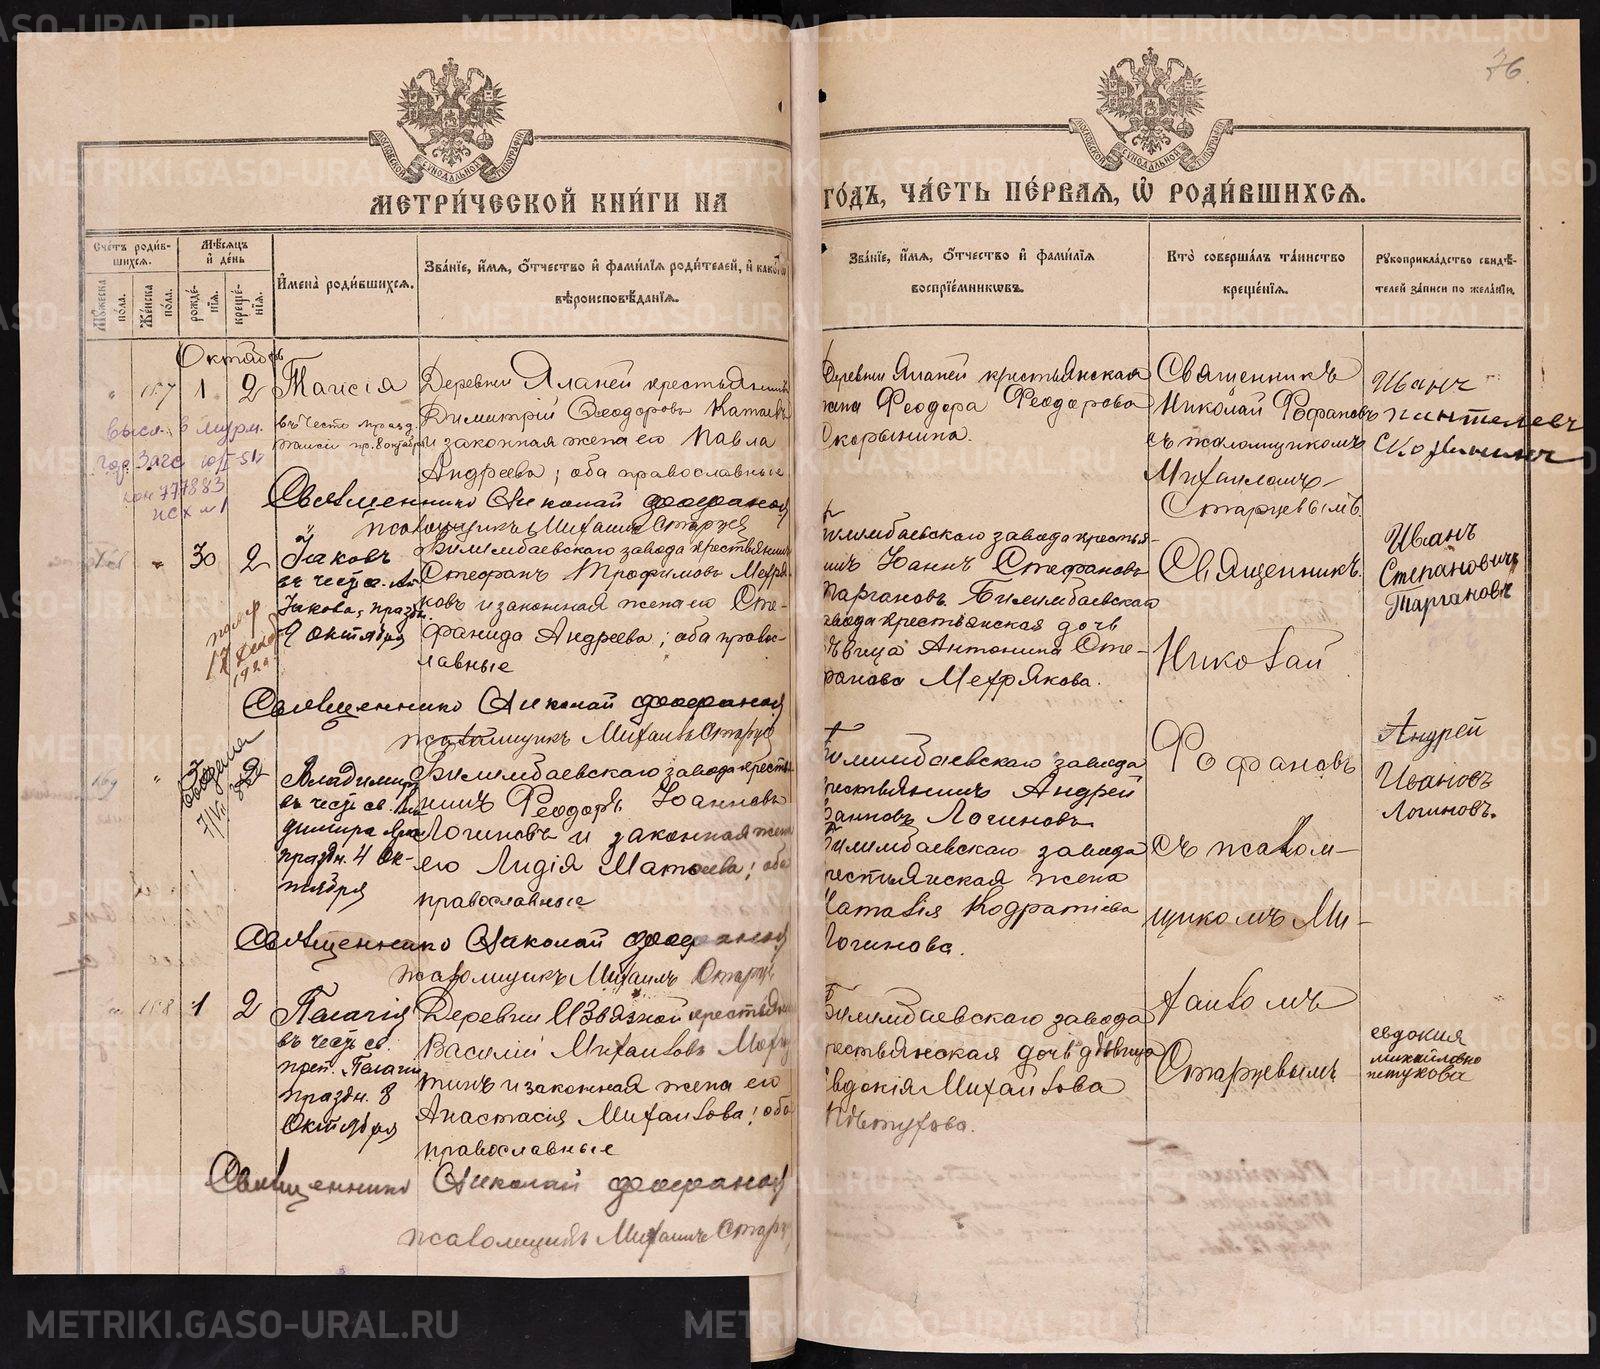 76.
МОСКОВСКОЙ СѴНОДАЛЬНОЙ ТИПОГРАФІИ
МОСКОВСКОЙ СѴНОДАЛЬНОЙ ТИПОГРАФІИ
МЕТРИ́ЧЕСКОЙ КНИ́ГИ НА
ГО́ДЪ, ЧА́СТЬ ПЕ́РВАЯ, Ѡ҆ РОДИ́ВШИХСЯ.
Сче́тъ роди́в-
шихся.
Мѣ́сяцъ
и҆ де́нь
Мꙋ́жеска по́ла.
Же́нска по́ла.
рожде́-
нїя.
креще́-
нїя.
И҆мена̀ роди́вшихся.
Зва́нїе, и҆́мя, ѻ҆́тчество и҆ фами́лїя роди́телей, и҆ како́гѡ
вѣроисповѣ́данїя.
Зва́нїе, и҆́мя, ѻ҆́тчество и҆ фами́лїя
воспрїе́мникѡвъ.
Кто̀ соверша́лъ та́инство
креще́нїя.
Рꙋкоприкла́дство свидѣ́-
телей за́писи по жела́нїи.
Октябрь
" 157 1 2 Таисія
въ честь празд.
Таисіи пр. 8 октября
Деревни Яланей крестьянинъ
Димитрій Ѳеодоровъ Катаевъ
и законная жена его Павла
Андреева; оба православные
Деревни Яланей крестьянская
жена Феодора Феодорова
Скорынина.
Священникъ
Николай Фофановъ
съ псаломщикомъ
Михаиломъ
Старцевымъ.
Иванъ
Скорынинъ
Священникъ Николай Фофановъ
псаломщикъ Михаилъ Старцев
" 30 2 Іаковъ
въ честь св. Ап.
Іакова, праздн.
9 октября
Билимбаевскаго завода крестьянинъ
Стефанъ Трофимовъ Мехря-
ковъ и законная жена его Сте-
фанида Андреева; оба право-
славные
Билимбаевскаго завода крестья-
нинъ Іоаннъ Стефановъ
Таргановъ. Билимбаевскаго
завода крестьянская дочь
дѣвица Антонина Сте-
фанова Мехрякова.
Священникъ
Николай
Иванъ
Степановичъ
Таргановъ
Священникъ Николай Фофановъ
псаломщикъ Михаилъ Старцев
" 2 Владиміръ
въ честь св. Вла
диміра Яро
праздн. 4 Ок-
тября
Билимбаевскаго завода кресть
нинъ Феодоръ Іоанновъ
Логиновъ и законная жена
его Лидія Матѳеева; оба
православные
Билимбаевскаго завода
крестьянинъ Андрей
Іоанновъ Логиновъ
Билимбаевскаго завода
крестьянская жена
Наталія Кодратіева
Логинова.
Фофановъ
съ псалом-
щикомъ Ми-
Андрей
Ивановъ
Логиновъ.
Священникъ Николай Фофановъ
псаломщикъ Михаилъ Старцев
" 158 1 2 Пелагія
въ честь св.
преп. Пелагіи
праздн. 8
Октября
Деревни Извязной крестьянин
Василій Михаиловъ
и законная жена его
Анастасія Михаилова; оба
православные
Билимбаевскаго завода
крестьянская дочь дѣвица
Евдокія Михаилова
Пѣтухова.
хаиломъ
Старцевымъ
евдокия
михайловна
петухова
Священникъ Николай Фофановъ
псаломщикъ Михаилъ Старцев